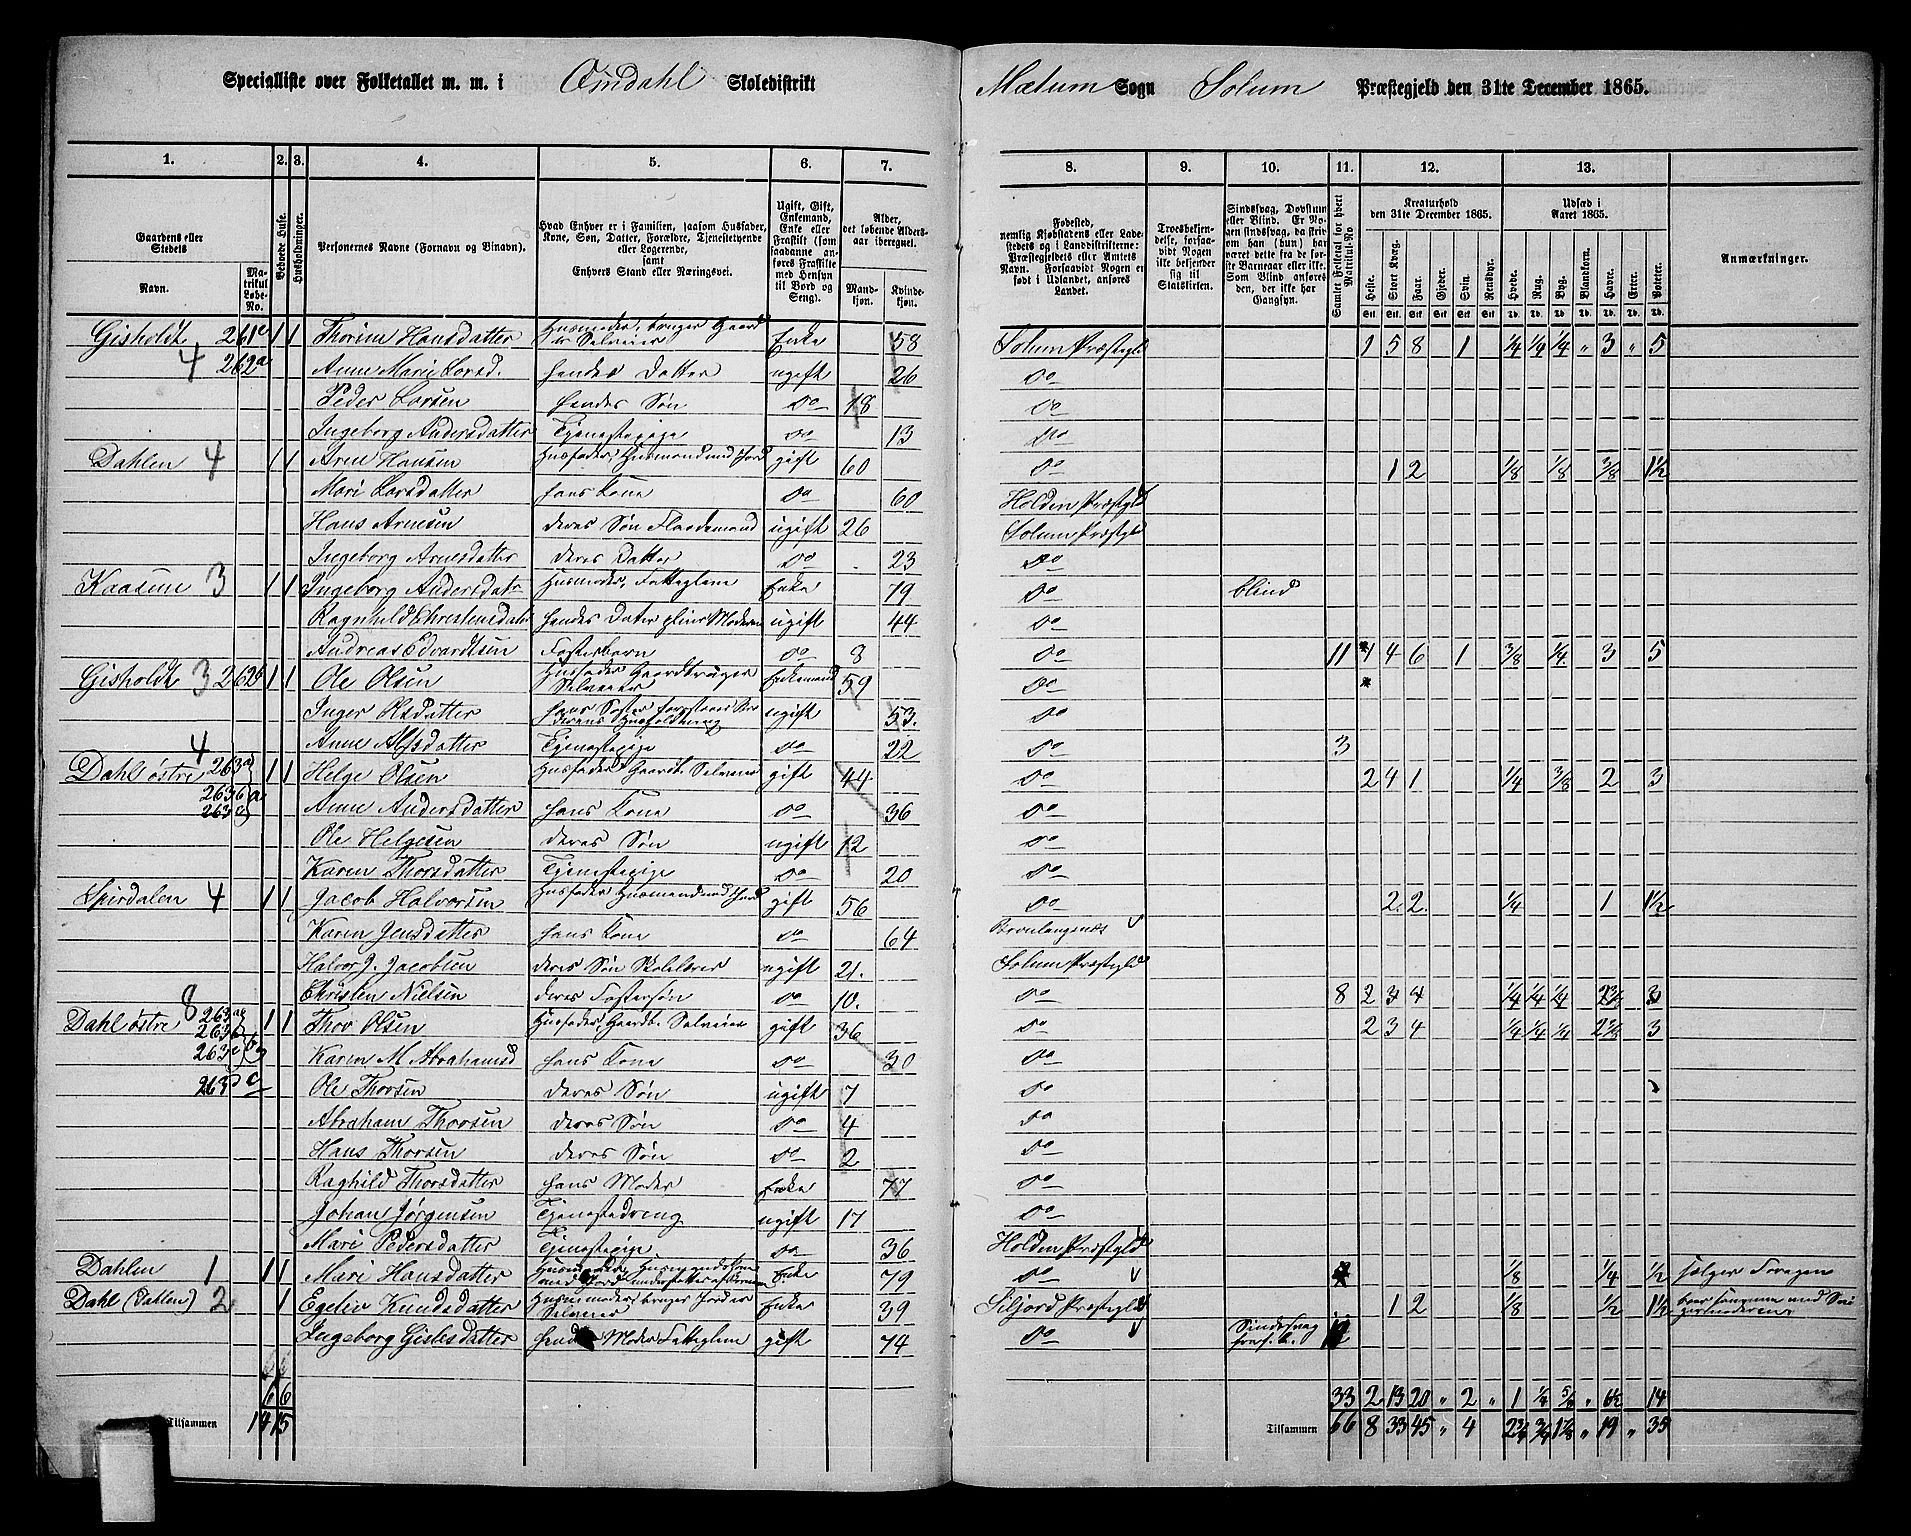 Specialliste over Folketallet m. m. i Omdahl Skoledistrikt Mælum Sogn Solum Præstegjeld den 31te December 1865.
1. 2. 3. 4. 5. 6. 7. 8. 9. 10. 11. 12. 13.
Gaardens eller Stedets
Navn. Matrikul Løbe-No.
Beboede Huse.
Husholdninger.
Personernes Navne (Fornavn og Binavn).
Hvad Enhver er i Familien, saasom Husfader, Kone, Søn, Datter, Forældre, Tjenestetyende eller Logerende, samt Enhvers Stand eller Næringsvei.
Ugift, Gift, Enkemand, Enke eller Fraskilt (som saadanne anføres Fraskilte med Hensyn til Bord og Seng).
Alder, det løbende Alders-aar iberegnet.
Mandkjøn. Kvindekjøn.
Fødested, nemlig Kjøbstadens eller Ladestedets og i Landdistrikterne: Præstegjeldets eller Amtets Navn. Forsaavidt Nogen er født i Udlandet, anføres Landet.
Troesbekjendelse, forsaavidt Nogen ikke bekjender sig til Statskirken.
Sindssvag, Døvstum eller Blind. Er Nogen sindssvag, da hvorvidt han (hun) har været dette fra første Barneaar eller ikke. Som Blind anføres den, der ikke har Gangsyn.
Samlet Folketal for hvert Matrikul-No.
Kreaturhold den 31te December 1865.
Heste. Stort Kvæg. Faar. Gjeder. Svin. Rensdyr.
Udsæd i Aaret 1865.
Hvede. Rug. Byg. Blandkorn. Havre. Erter. Poteter.
Anmærkninger.
Gisholdt 261c 1 1 Thorine Hansdatter Husmoder, bruger Gaard Selveier Enke 58 Solum Præstegld 1 5 8 1 1/4 1/4 1/4 " 3 " 5
4 262a Anne Marie Larsd. hendes Datter ugift 26 Do
Peder Larsen hendes Søn Do 18 Do
Ingeborg Andersdatter Tjenestepige Do 13 Do
Dahlen 4 1 1 Aren Hansen Husfader, Husmand med Jord gift 60 Do 1 2 1/8 1/8 3/8 1 1/2
Mari Larsdatter hans Kone Do 60 Holden Præstgld
Hans Arnesen deres Søn Flaademand ugift 26 Solum Præstgld
Ingeborg Arnesdatter deres Datter Do 23 Do
Kaasene 3 1 1 Ingeborg Andersdatr Husmoder, Fatteglem Enke 79 Do blind
Ragnhild Christensdatr hendes Dater pleier Moderen ugift 44 Do
Andreas Edvardtsen Fosterbarn Do 8 Do 11 1 4 6 1 3/8 1/4 3 5
Gisholdt 3 262b 1 1 Ole Olsen Husfader Gaardbruger Selveier Enkemand 59 Do
Inger Olsdatter hans Søster forestaaer Husholdning ugift 53. Do
Anne Alfsdatter Tjenestepige Do 22 Do 3
4 Dahl østre 263 1 1 Helge Olsen Husfader Gaardb. Selveier gift 44 Do 2 4 1 1/4 3/8 2 3
Anne Andersdatter hans Kone Do 36 Do
Ole Helgesen deres Søn ugift 12 Do
Karen Thorsdatter Tjenestepige Do 20 Do
Spirdalen 4 1 1 Jacob Halvorsen Husfader Husmand med Jord gift 56 Do 2. 2. 1/4 1 1 1/2
Karen Jensdatter hans Kone Do 64 Brunlangenæs
Halvor J. Jacobsen deres Søn Skolelærer ugift 21. Solum Præstgld
Christen Nielsen deres Fostersøn Do 10. Do 8 2 3 4 1/4 1/4 1/4 2 1/2 3
8 Dahl østre 263 1 1 Thor Olsen Husfader, Gaardb. Selveier gift 36 Do 2 3 4 1/4 1/4 1/4 2 1/2 3
263 Karen M. Abrahamsd hans Kone Do 30 Do
263 c Ole Thorsen deres Søn ugift 7 Do
Abraham Thorsen deres Søn Do 4 Do
Hans Thorsen deres Søn Do 2 Do
Raghild Thorsdatter hans Moder Enke 77 Do
Johan Jørgensen Tjenestedreng ugift 17 Do
Mari Pedersdatter Tjenestepige Do 36 Holden Præstgld
Dahlen 1 1 1 Mari Hansdatter Husmoder, Husmandskone med Jord understøttes af Børnene Enke 79 Do 1/8 1/4 1/2
Dahl (Dahlen) 2 1 Egelev Knudsdatter Husmoder, bruger Jorder Selveier Enke 39 Siljord Præstgld 1 2 1/8 1/2 1 1/2
Ingeborg Gislesdatter hendes Moder Fatteglem gift 74 Do Sindssvag
6 6 33 2 13 20 " 2 " 1 1/4 5/8 " 6 1/2 14
Tilsammen 14 15 Tilsammen 66 8 33 45 " 4 2 3/4 3/4 1 7/8 " 19 " 35